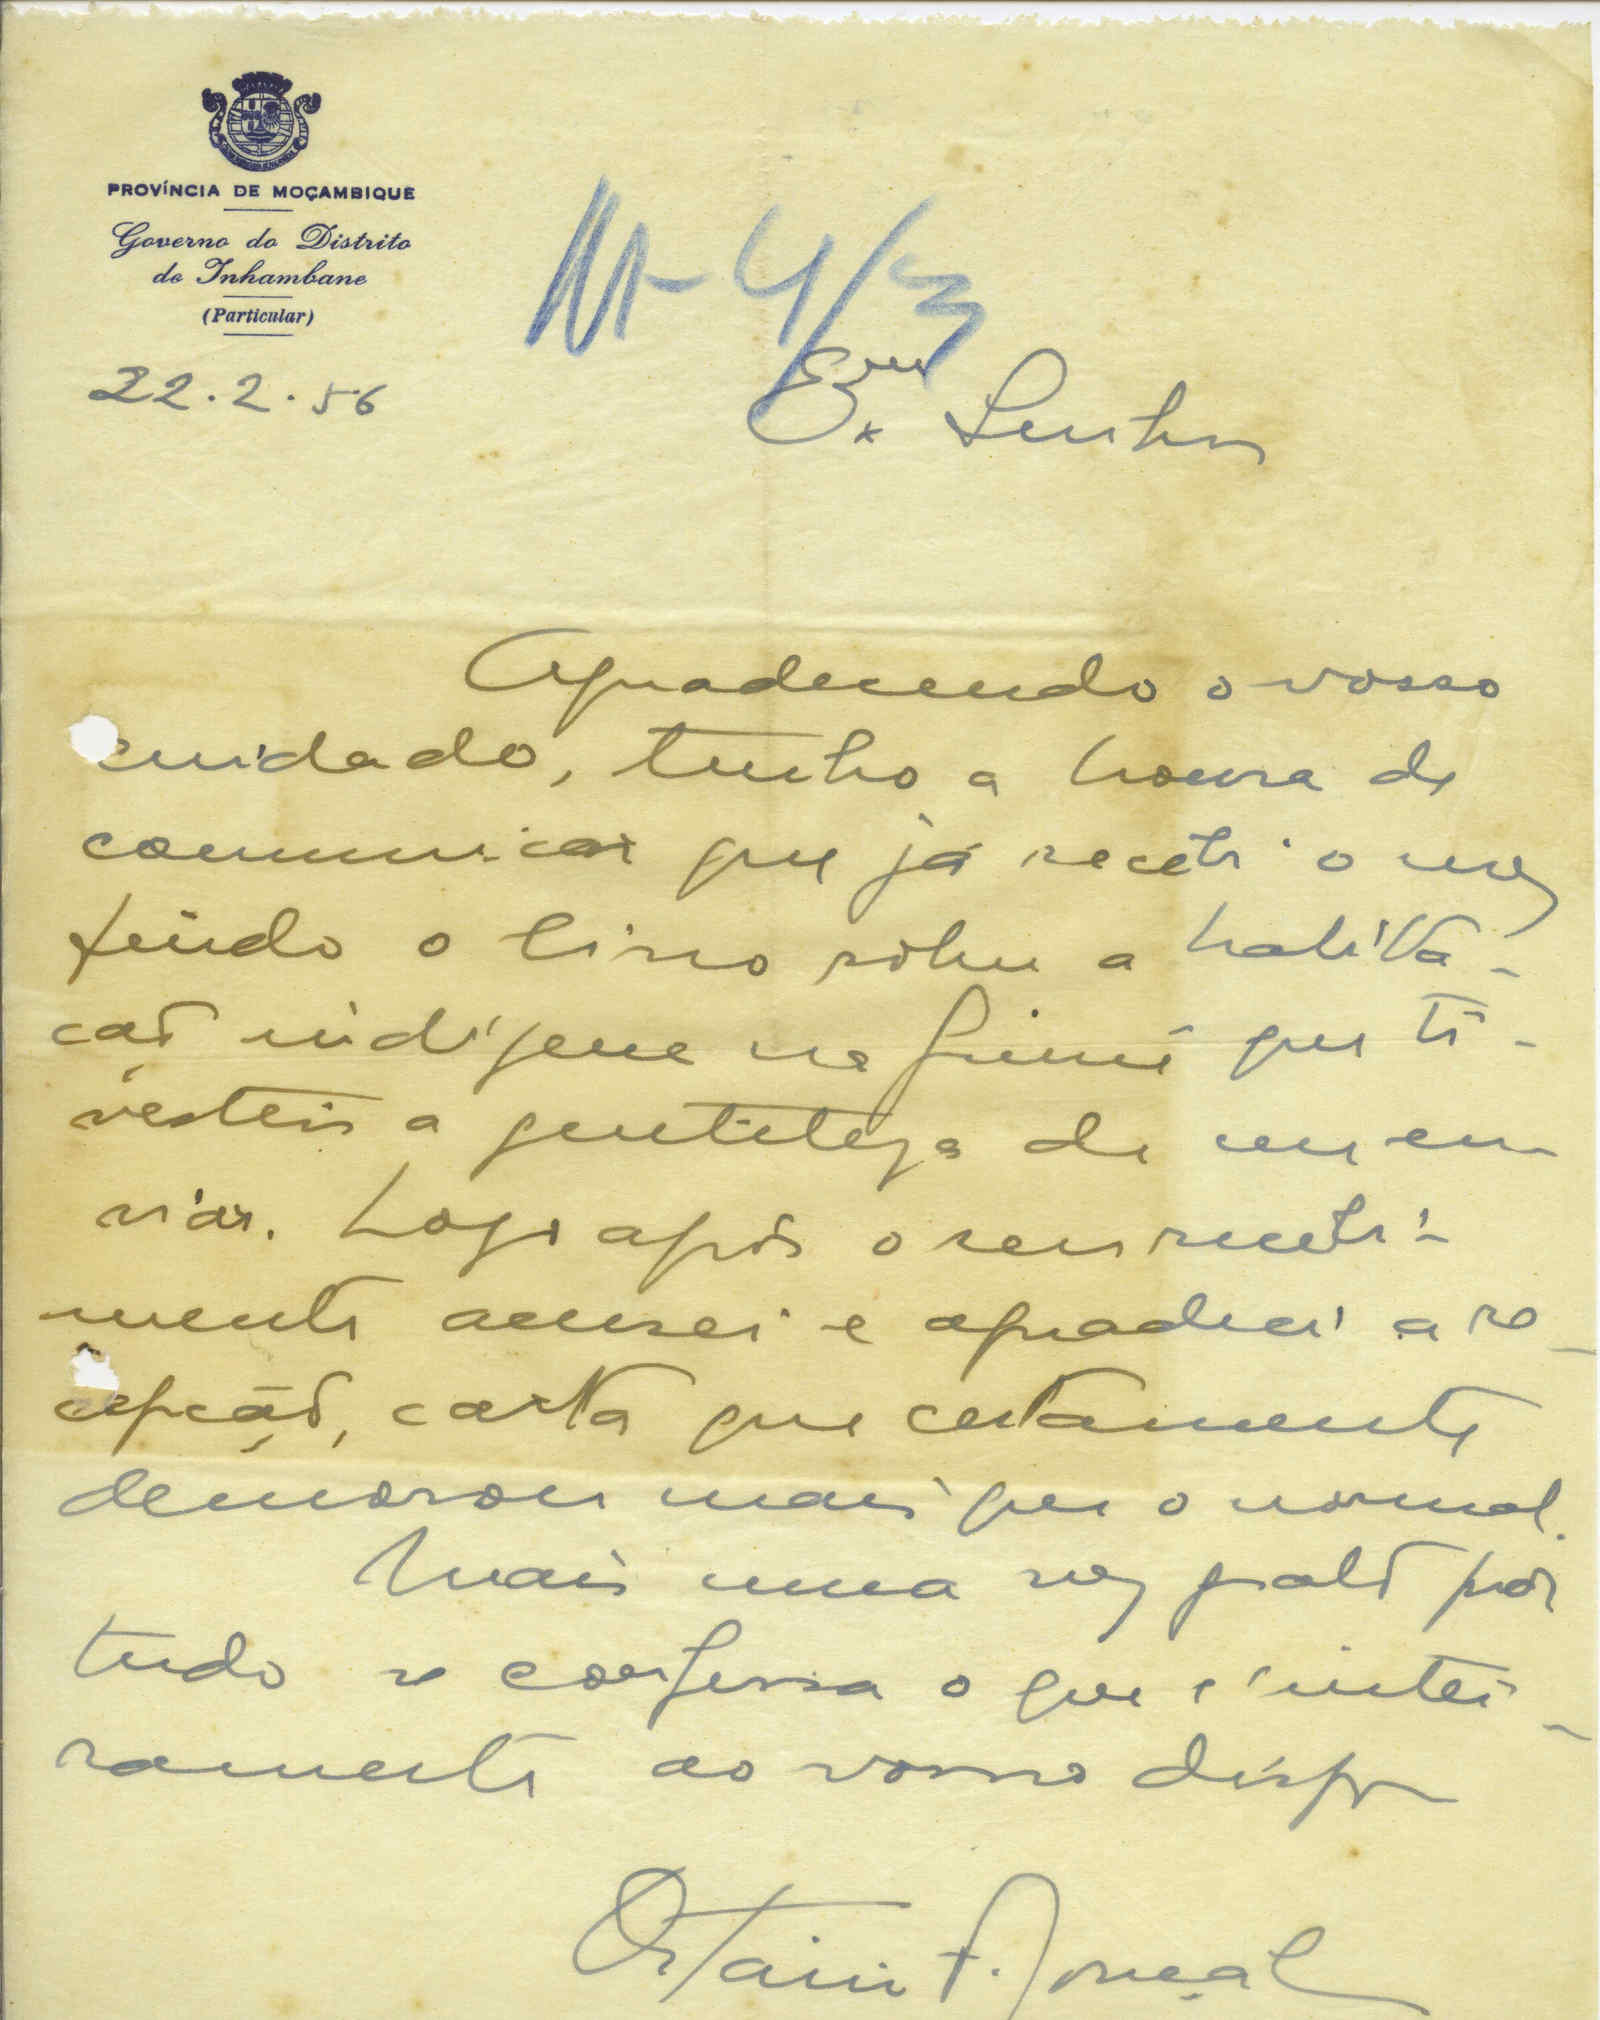 PROVÍNCIA DE MOÇAMBIQUE
Governo do Distrito
de Inhambane
(Particular)
22.2.56
4/3
Exmo. Senhor
Agradecendo o vosso
cuidado, tenho a honra de
comunicar que já recebi o
livro sobre a habita-
ção indígena na Guiné que ti-
vesteis a gentileza de me en
viar. Logo após o seu recebi-
mento acusei e agradeci a re-
cepção, carta que certamente
demorou mais que o normal.
Mais uma vez grato por
tudo se confessa o que é intei-
ramente ao vosso dispor